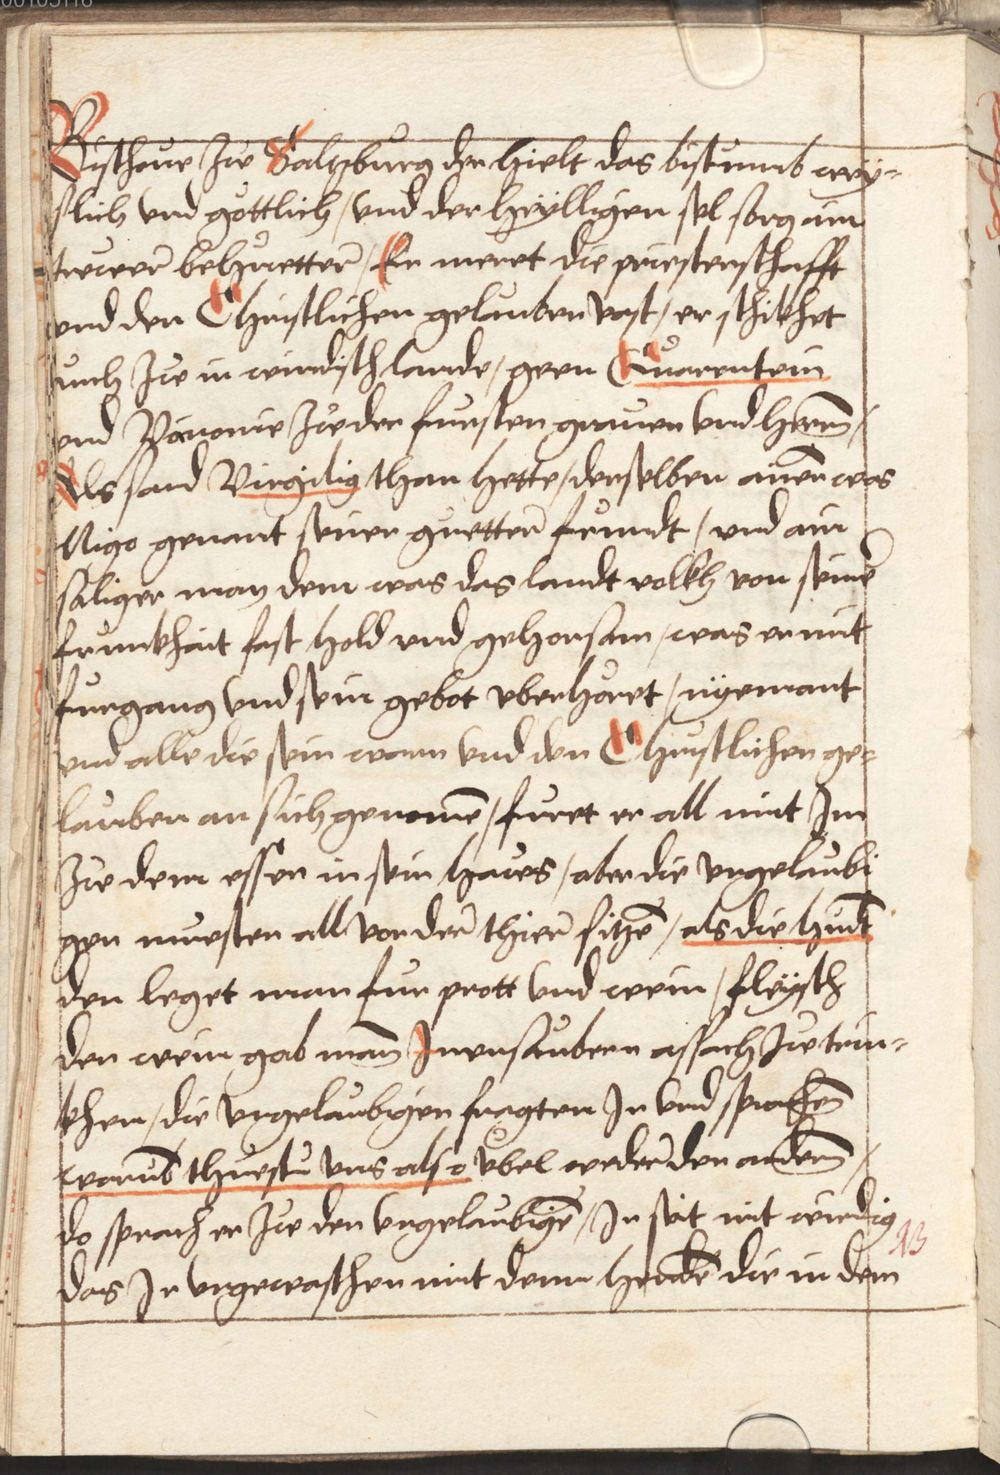 00105118
Bisthoue zw Saltzburg der hielt das bistumb wey-
slich vnd gottlich / vnd der heylligen sel sorg ain
trewer behuetter / Er meret die priesterschafft
vnd den Christlichen gelauben vast / er schikhet
auch zw in windisch lande / geen Quarentein
vnd Panonie zw den fursten grauen vnd herrn /
Als sand Virgilig than hette / derselben ainer was
Nigo genant seiner guetter freundt / vnd ain
saliger man dem was das landt volkh von seiner
frumkhait fast hold vnd gehorsam / was er mit
furgang vnd sein gebot vberhoret / nyemant
vnd alle die sein warn vnd den Christlichen ge-
lauben an sich genomen / furet er all mit Im
zw dem essen in sein haws / aber die vngelaubi
gen muesten all vor der thier sitzen / als die hundt
den leget man fur prott vnd wein / fleysch
den wein gab man In vnsaubern assach zw trin-
khen / die vngelaubigen fragten In vnd sprachen
warumb thuestu vns also vbel weder den andern /
do sprach er zw den vngelaubigen / Ir seit nit wirdig
das Ir vngewaschen mit denn die in dem